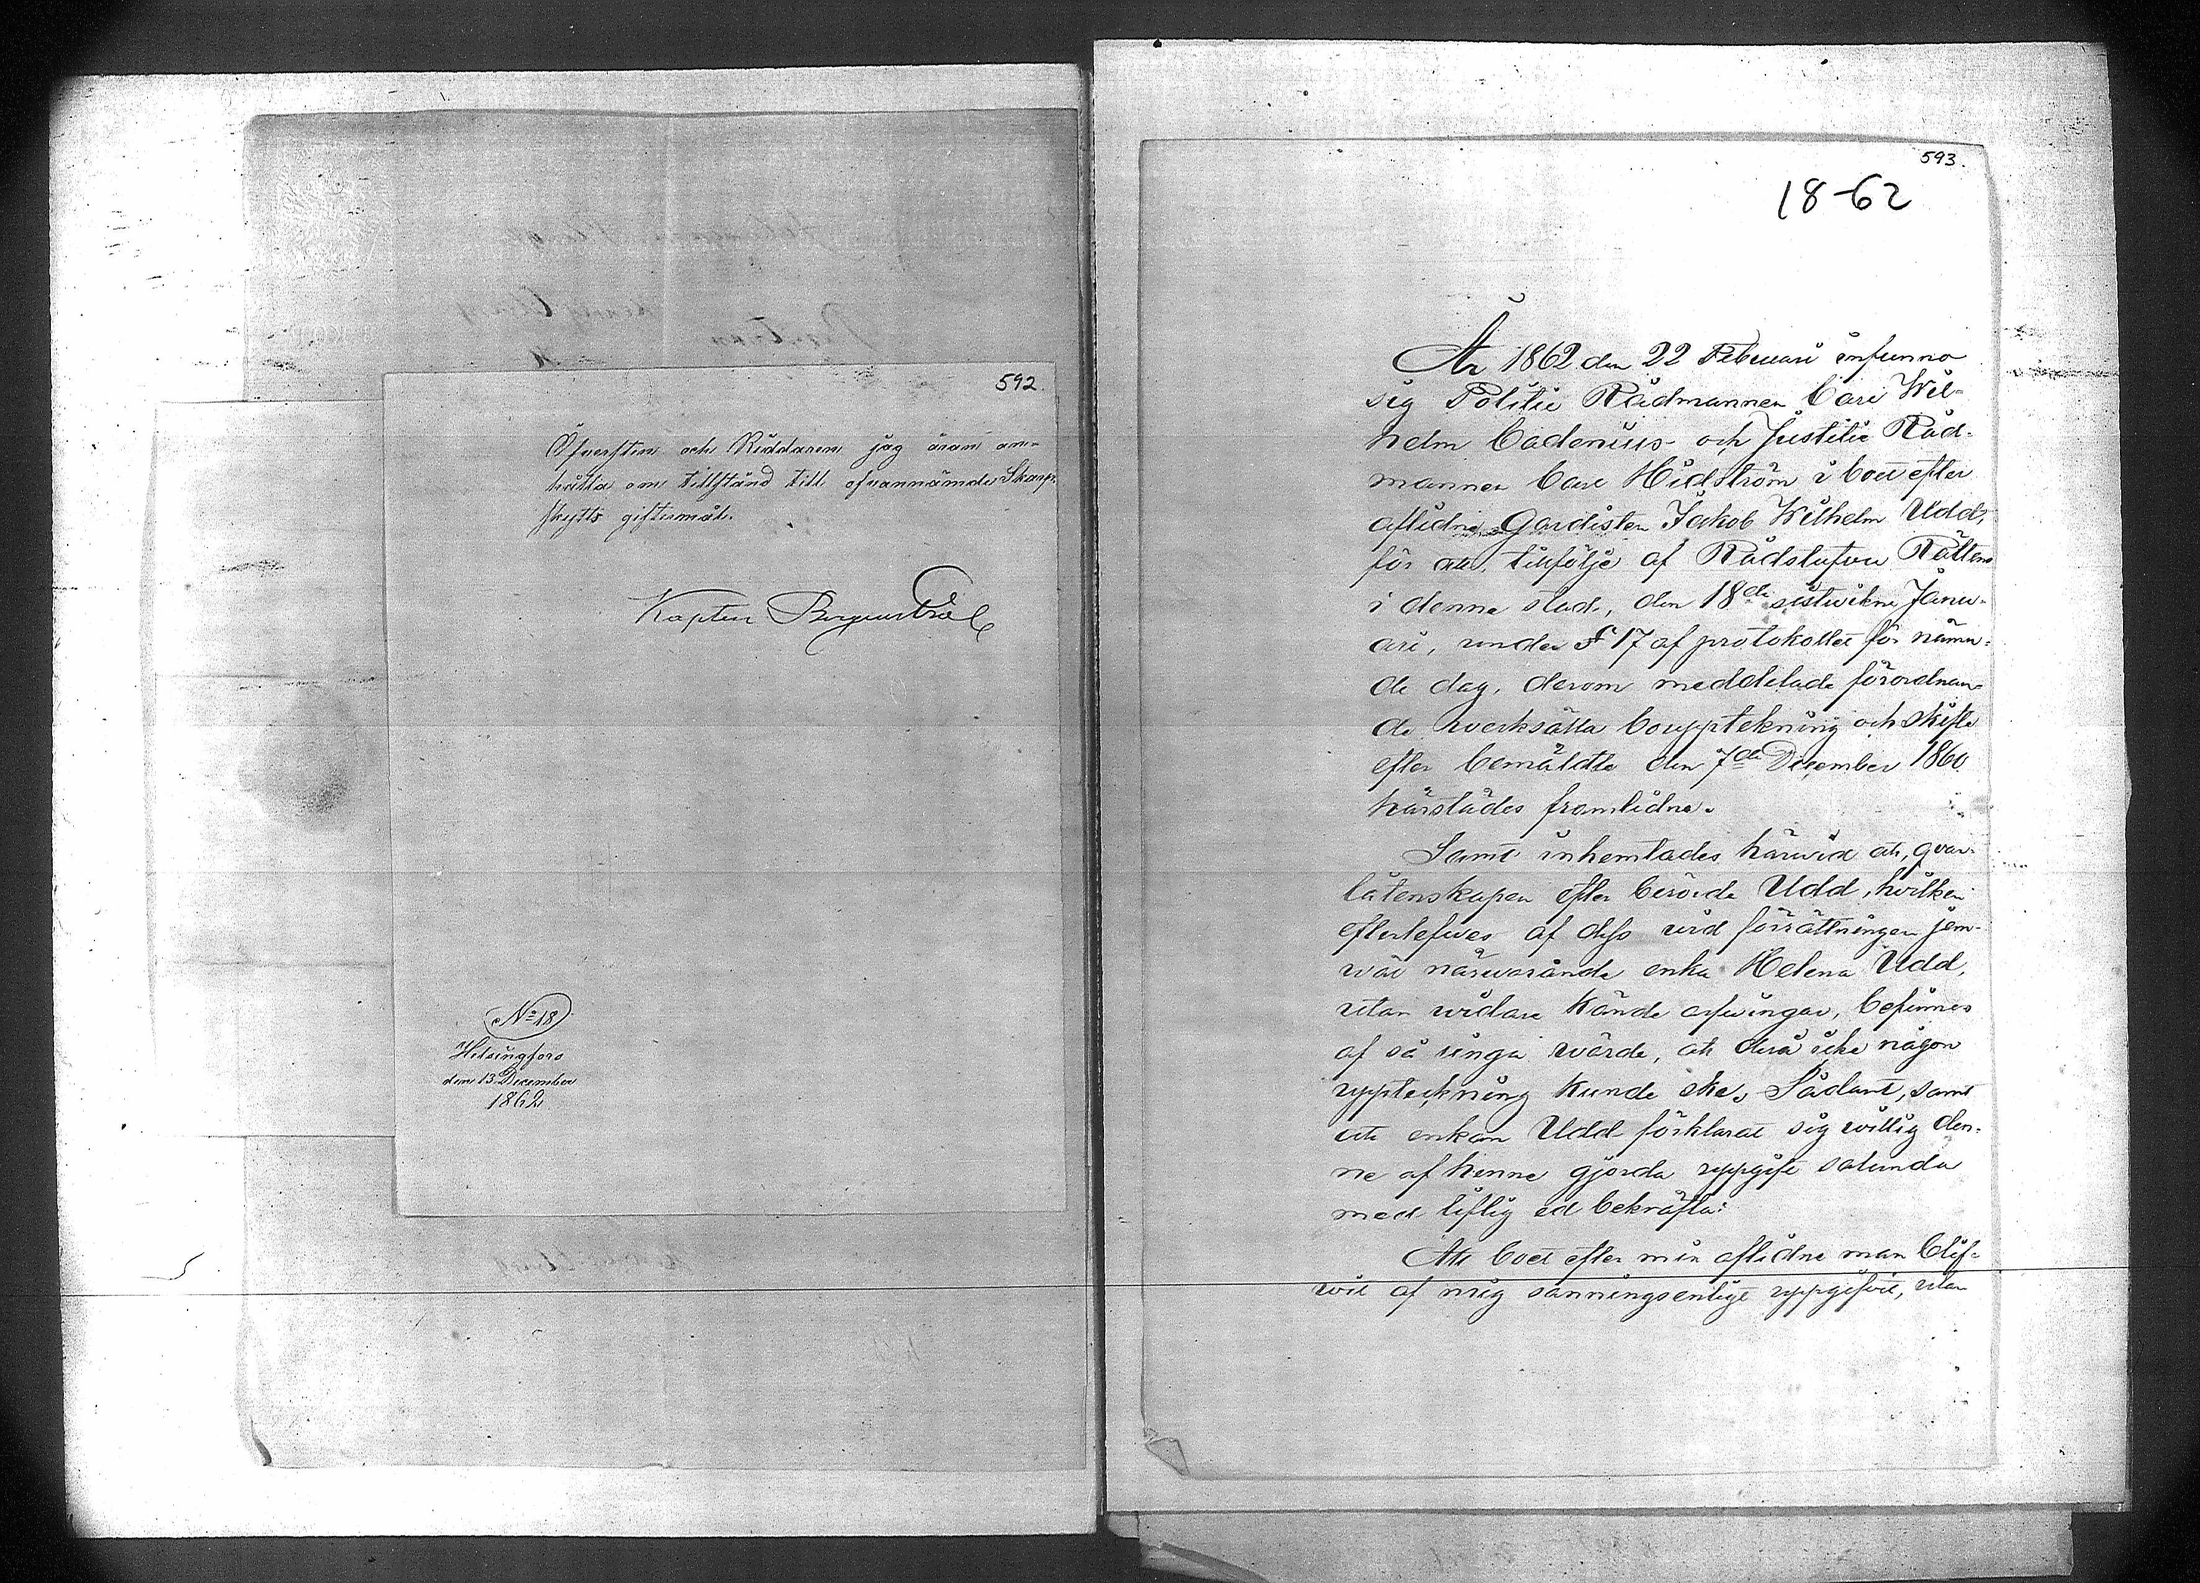 592.
Öfversten och Riddaren jag äran an-
hålla om tillstånd till ofvannämde Skarp-
skytts giftermål.
Kapten
No 18
Helsingfors
den 13 December
1862
593.
18-62
År 1862 den 22 Februari infunno
sig Politie Rådmannen Carl Wil-
helm Cadenius och Justitie Råd-
mannen Carl Hidström i boet efter
aflidne Gardisten Jakob Wilhelm Udd,
för att, tillfölje af Rådstufvu Rättens
i denna stad, den 18de sistvikne Janu-
ari, under § 17 af protokollet för nämn-
de dag, derom meddelade förordnan-
de verksätta bouppteckning och skifte
efter bemäldte den 7de December 1860
härstädes framlidne.
Samt inhemtades härwid att, qvar-
låtenskapen efter berörde Udd, hvilken
efterlefves af dess vid förrättningen jem-
wäl närwarande enka Helena Udd,
utan widare kände arfvingar, befinnes
af så ringa wärde, att derå icke någon
uppteckning kunde ske. Sådant, samt
att enkan Udd förklarat sig willig den-
ne af henne gjorda uppgift salunda
med liflig ed bekräfta:
Att boet efter min aflidne man blif-
wit af mig sanningsenligt uppgifvit, utan